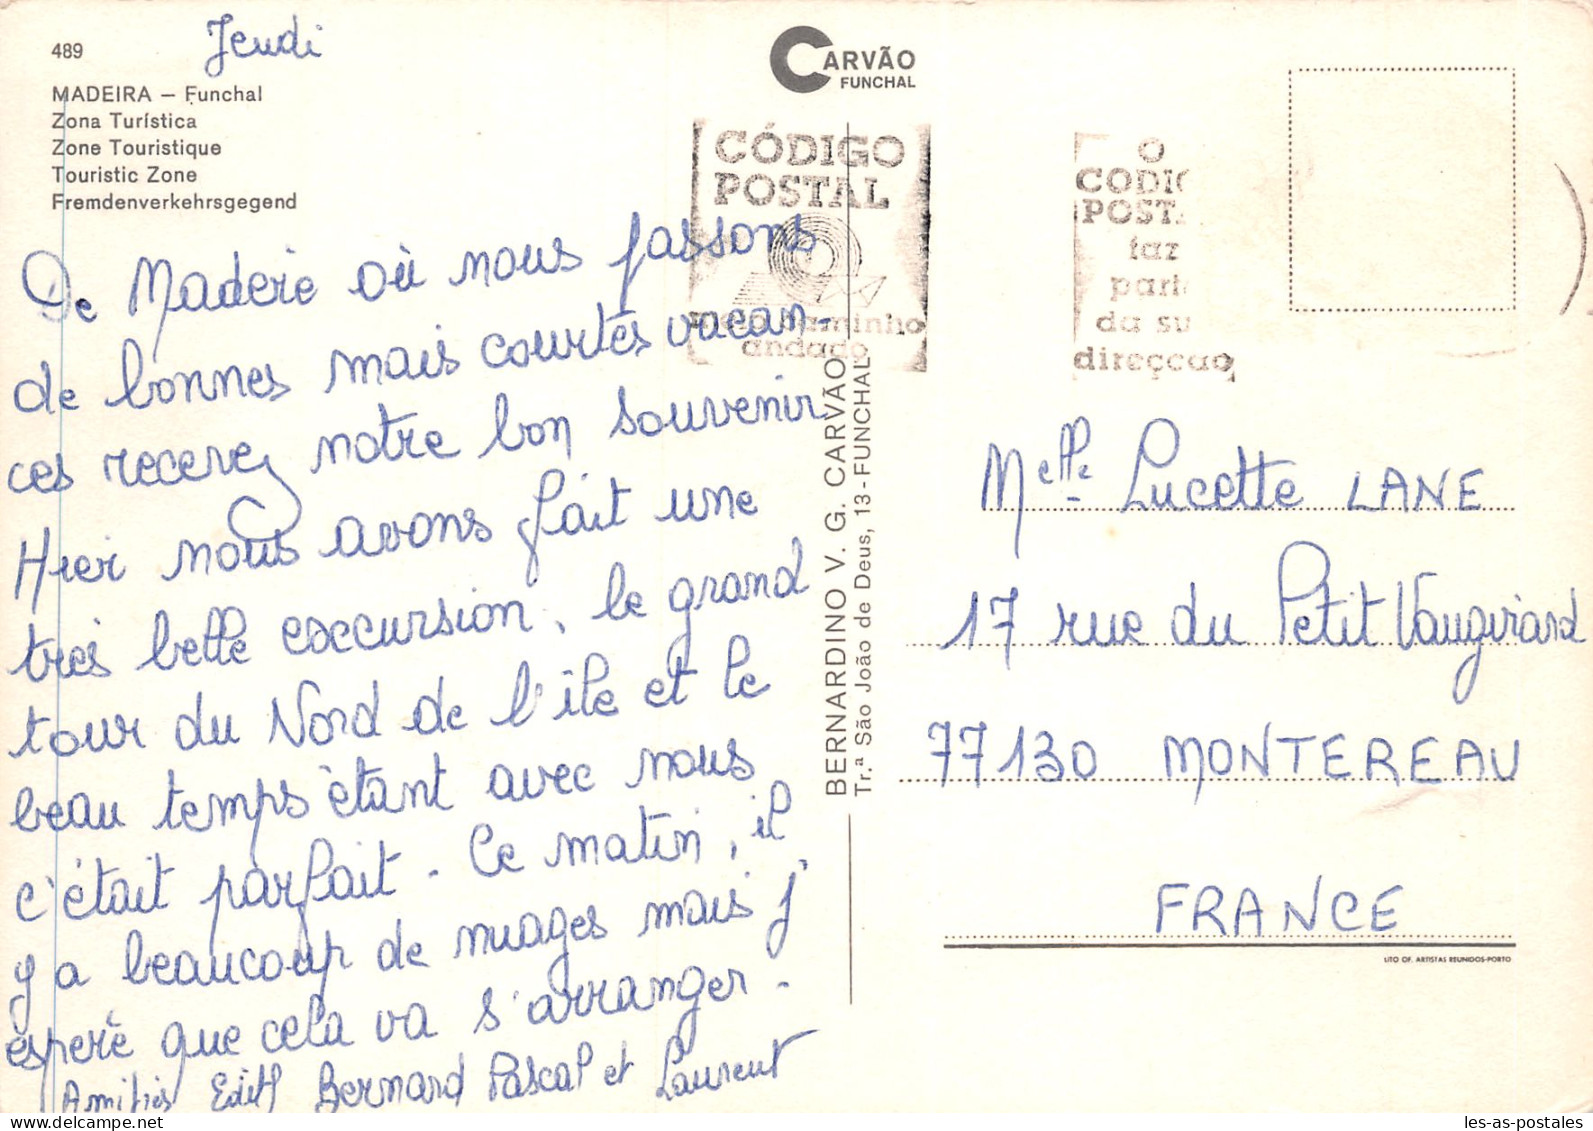 489
Jeudi
MADEIRA — Funchal
Zona Turística
Zone Touristique
Touristic Zone
Fremdenverkehrsgegend
CARVÃO
FUNCHAL
CÓDIGO
POSTAL
meio caminho
andado
O
CODIG
POSTA
faz
part
da su
direcçao
De Madère où nous passons
de bonnes mais courtes vacan-
ces recevez notre bon souvenir
Hier nous avons fait une
très belle excursion, le grand
tour du Nord de l'île et le
beau temps étant avec nous
c'était parfait - Ce matin, il
y a beaucoup de nuages mais j'
espère que cela va s'arranger -
Amitiés Edith Bernard Pascal et Laurent
BERNARDINO V. G. CARVÃO
Tr.ª São João de Deus, 13 - FUNCHAL
Melle Lucette LANE
17 rue du Petit Vaugirard
77130 MONTEREAU
FRANCE
LITO OF. ARTISTAS REUNIDOS-PORTO
les-as-postales